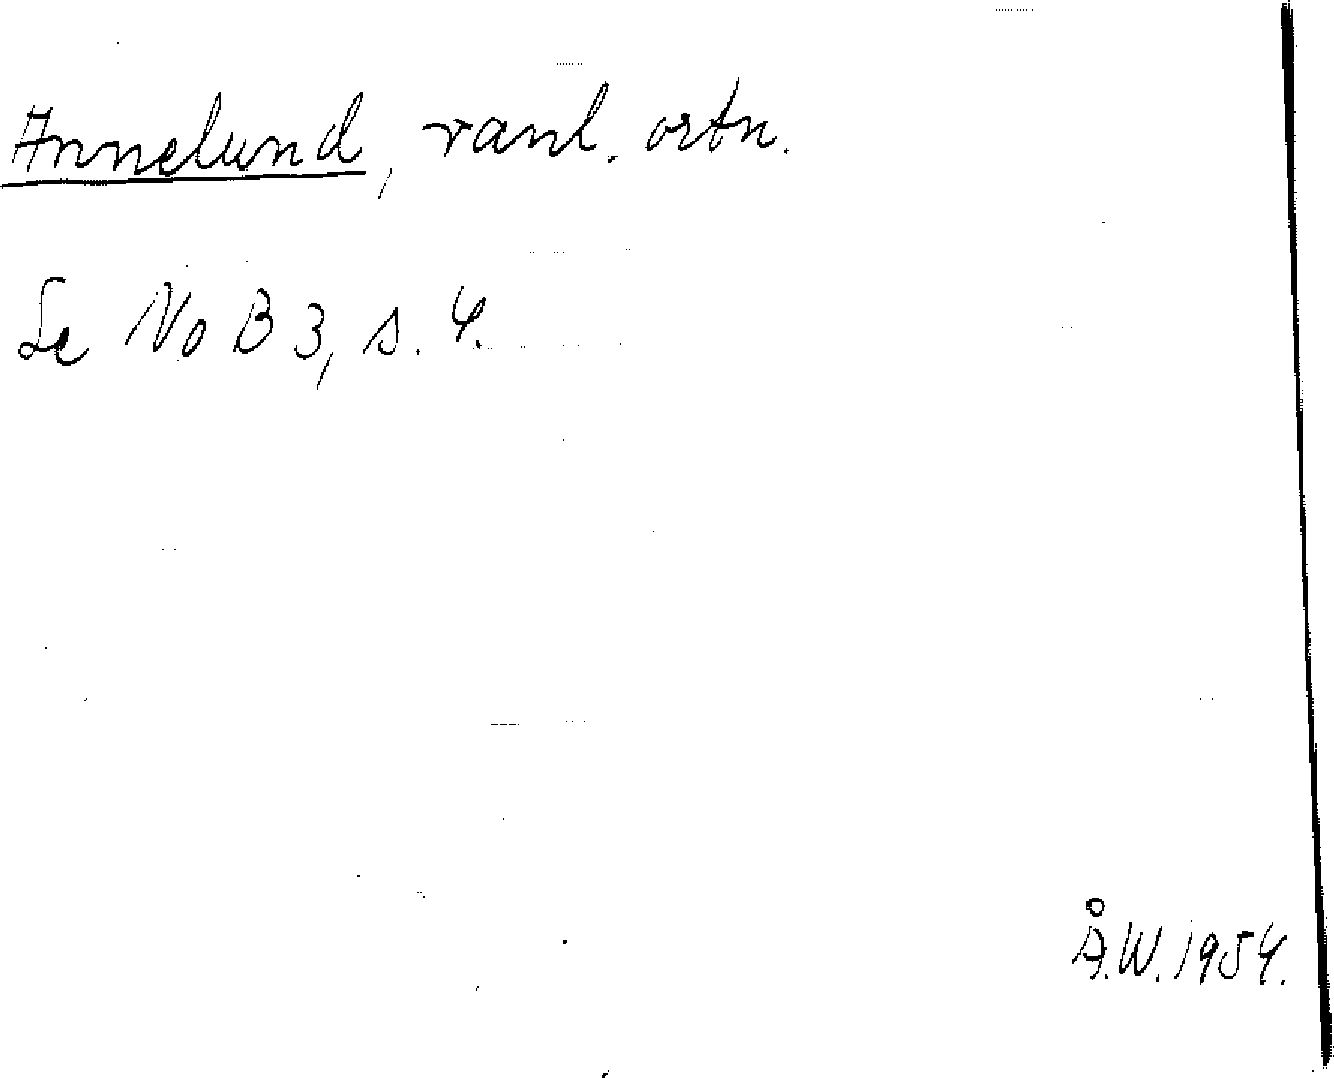 Annelund, vanl. ortn.
Se NoB 3, s. 4.
Å.W. 1954.